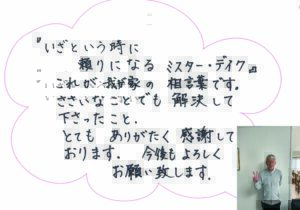 『いざという時に
頼りになる ミスター・デイク』
これが 我が家の 相言葉です。
ささいなことでも 解決して
下さったこと、
とても ありがたく 感謝して
おります。 今後もよろしく
お願い致します。